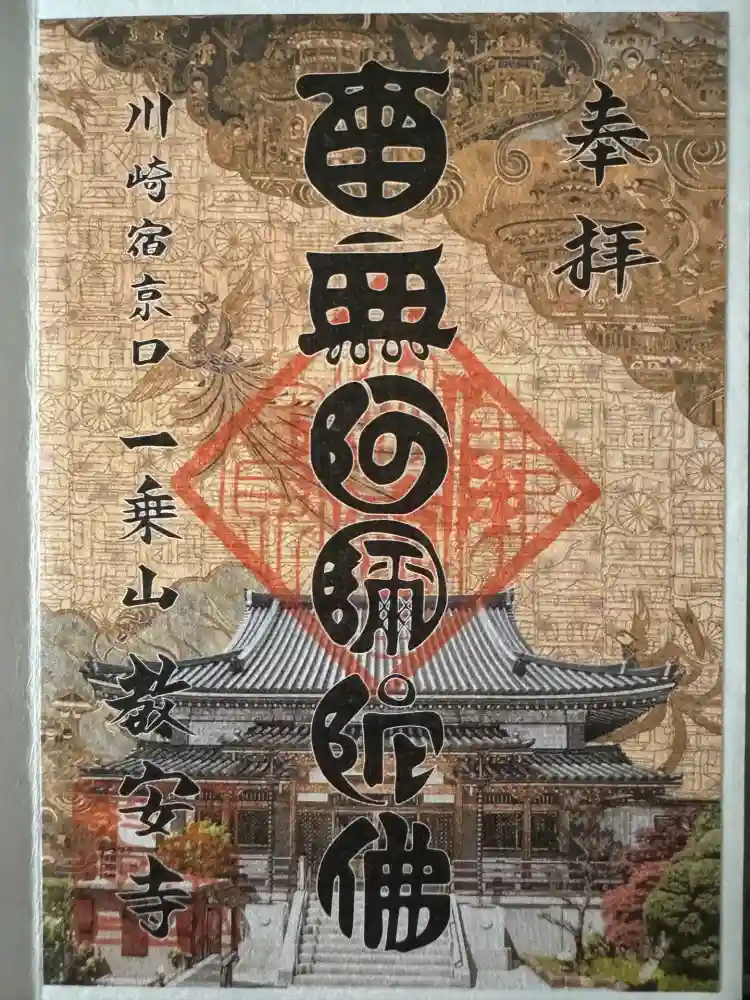 奉拝
南無阿弥陀佛
川崎宿京口 一乗山 教安寺